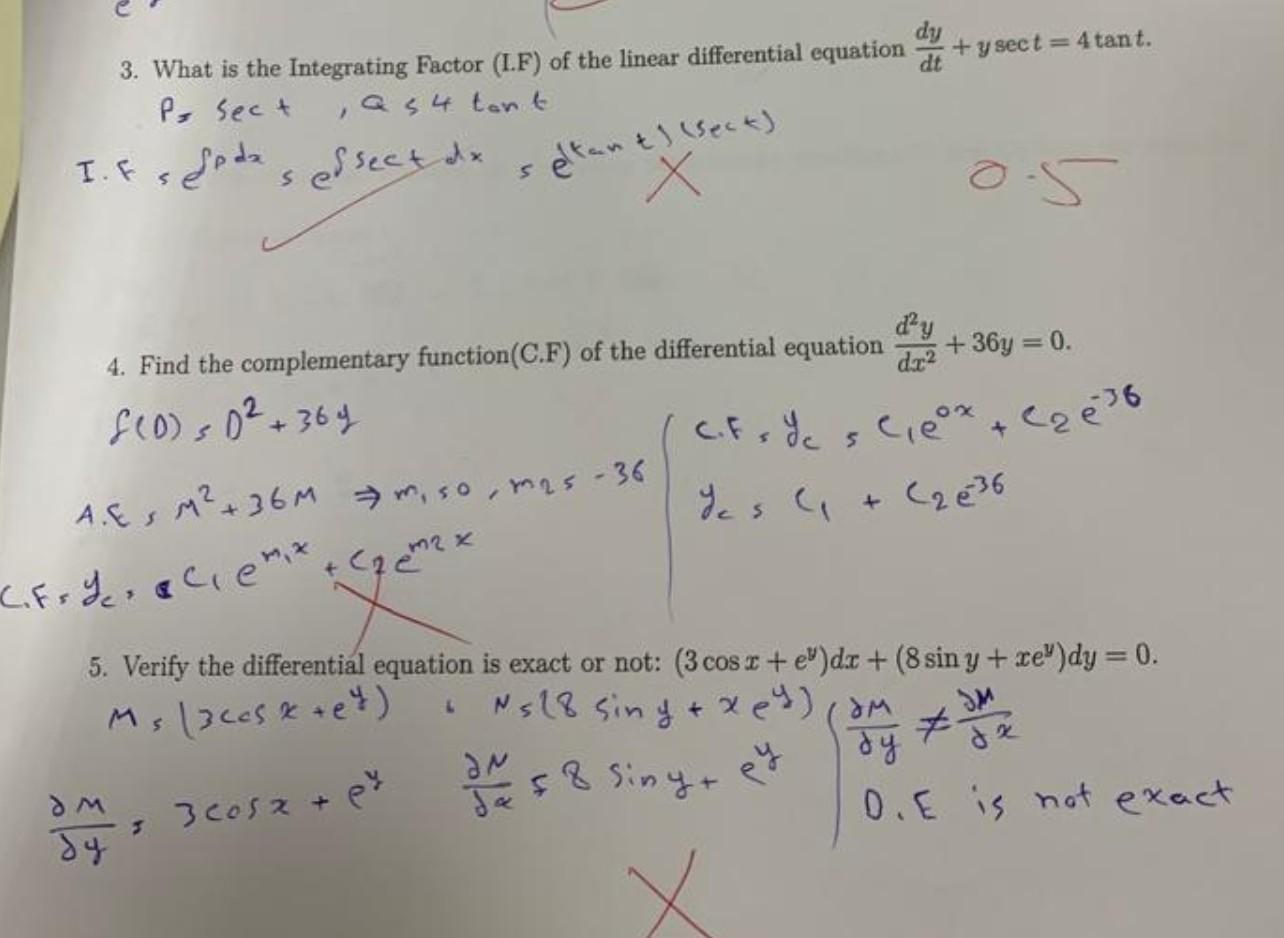 3. What is the Integrating Factor (I.F) of the linear differential equation dy/dt + y sec t = 4 tan t.
P = sec t , Q = 4 tan t
I.F = e^∫p dx = e^∫sec t dx = e^(tan t)(sec t)
0.5
4. Find the complementary function(C.F) of the differential equation d²y/dx² + 36y = 0.
f(D) = D² + 36y
A.E = M² + 36M ⇒ m₁ = 0 , m2 = -36
C.F = y_c = C₁ e^(m₁x) + C₂ e^(m2 x)
C.F = y_c = C₁e^(0x) + C₂e^(-36)
y_c = C₁ + C₂e^(-36)
5. Verify the differential equation is exact or not: (3 cos x + e^y)dx + (8 sin y + xe^y)dy = 0.
M = (3cos x + e^y) , N = (8 sin y + x e^y)
∂M/∂y = 3cosx + e^y ∂N/∂x = 8 sin y + e^y
∂M/∂y ≠ ∂M/∂x
D.E is not exact